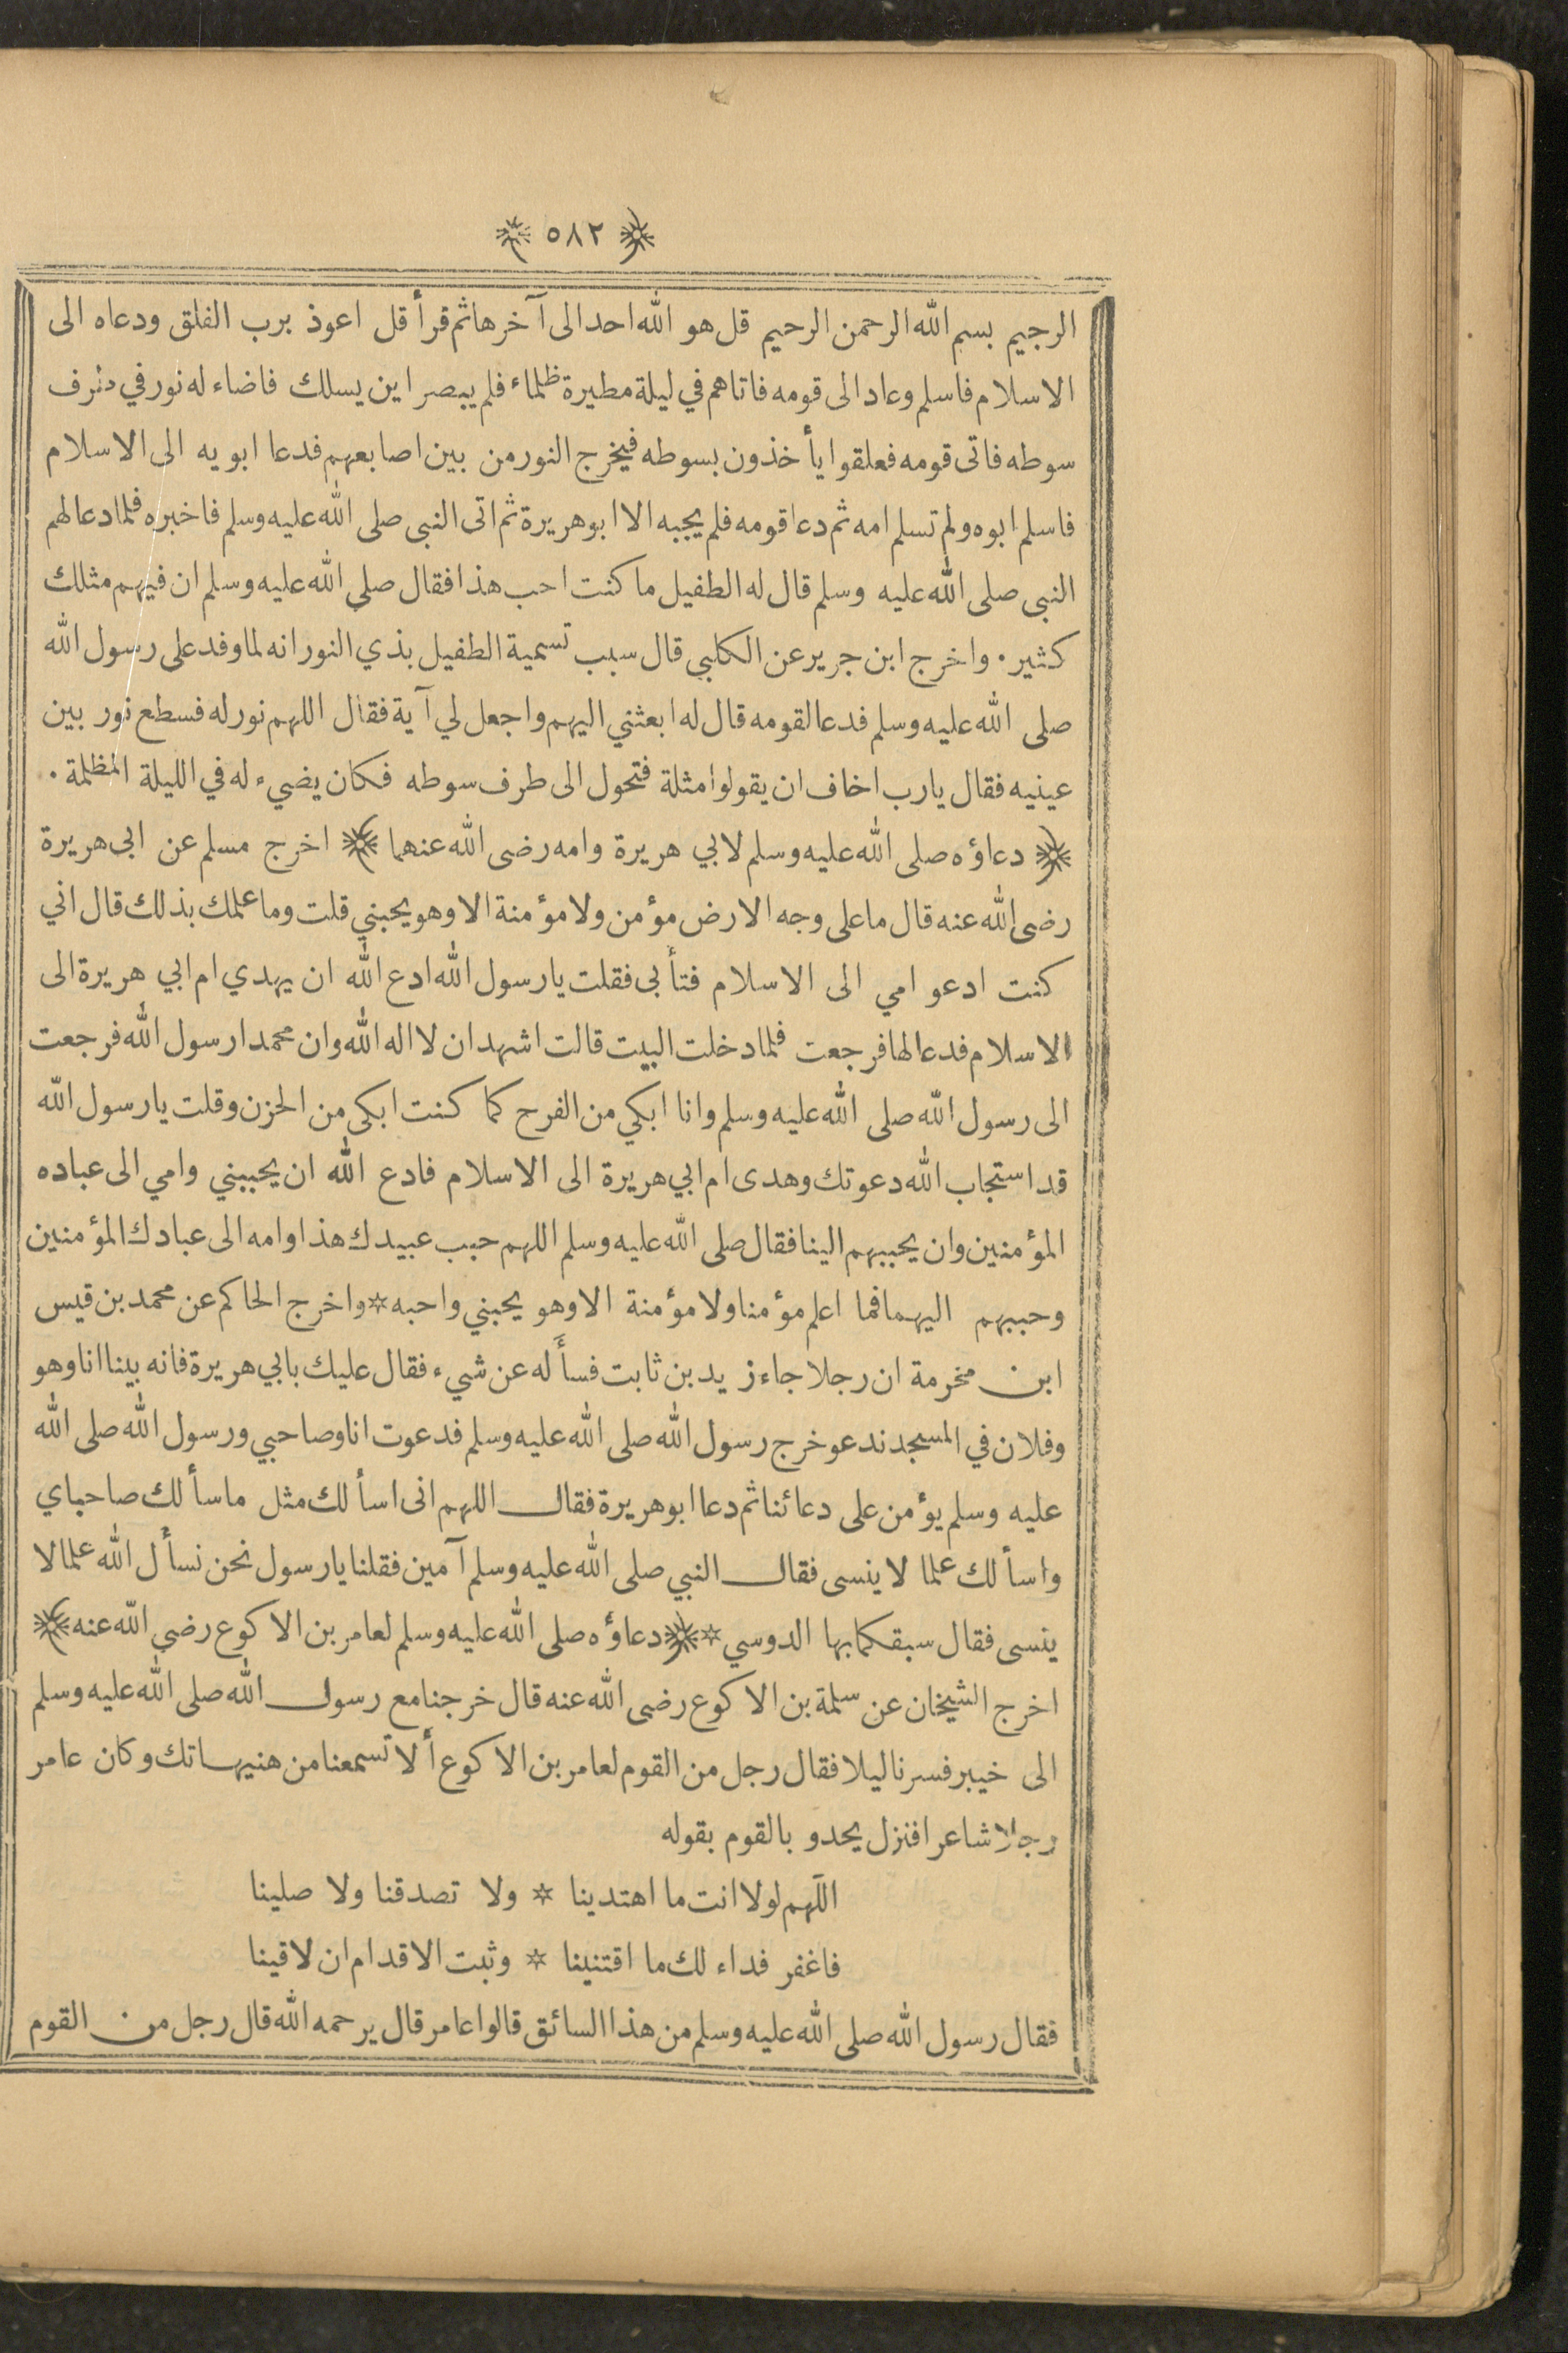 ﴿ ٥٨٢ ﴾
الرجيم بسم الله الرحمن الرحيم قل هو الله احد الى آخرها ثم قرأ قل اعوذ برب الفلق ودعاه الى
الاسلام فاسلم وعاد الى قومه فاتاهم في ليلة مطيرة ظلماء فلم يبصر اين يسلك فاضاء له نور في طرف
سوطه فاتى قومه فعلقوا يأخذون بسوطه فيخرج النور من بين اصابعهم فدعا ابويه الى الاسلام
فاسلم ابوه ولم تسلم امه ثم دعا قومه فلم يجبه الا ابو هريرة ثم اتى النبى صلى الله عليه وسلم فاخبره فلما دعا لهم
النبى صلى الله عليه وسلم قال له الطفيل ما كنت احب هذا فقال صلى الله عليه وسلم ان فيهم مثلك
كثير. واخرج ابن جرير عن الكلبي قال سبب تسمية الطفيل بذي النور انه لما وفد على رسول الله
صلى الله عليه وسلم فدعا لقومه قال له ابعثني اليهم واجعل لي آية فقال اللهم نور له فسطع نور بين
عينيه فقال يارب اخاف ان يقولوا مثلة فتحول الى طرف سوطه فكان يضيء له في الليلة المظلمة.
﴿ دعاؤه صلى الله عليه وسلم لابي هريرة وامه رضى الله عنهما ﴾ اخرج مسلم عن ابى هريرة
رضى الله عنه قال ما على وجه الارض مؤمن ولا مؤمنة الا وهو يحبني قلت وما علمك بذلك قال اني
كنت ادعو امي الى الاسلام فتأبى فقلت يارسول الله ادع الله ان يهدي ام ابي هريرة الى
الاسلام فدعا لها فرجعت فلما دخلت البيت قالت اشهد ان لا اله الله وان محمدا رسول الله فرجعت
الى رسول الله صلى الله عليه وسلم وانا ابكي من الفرح كما كنت ابكى من الحزن وقلت يارسول الله
قد استجاب الله دعوتك وهدى ام ابي هريرة الى الاسلام فادع الله ان يحببني وامي الى عباده
المؤمنين وان يحببهم الينا فقال صلى الله عليه وسلم اللهم حبب عبيدك هذا وامه الى عبادك المؤمنين
وحببهم اليهما فما اعلم مؤمنا ولا مؤمنة الا وهو يحبني واحبه * واخرج الحاكم عن محمد بن قيس
ابن مخرمة ان رجلا جاء زيد بن ثابت فسأله عن شيء فقال عليك بابي هريرة فانه بينا انا وهو
وفلان في المسجد ندعو خرج رسول الله صلى الله عليه وسلم فدعوت انا وصاحبي ورسول الله صلى الله
عليه وسلم يؤمن على دعائنا ثم دعا ابو هريرة فقال اللهم انى اسألك مثل ما سألك صاحباي
واسألك علما لا ينسى فقال النبي صلى الله عليه وسلم آمين فقلنا يارسول نحن نسأل الله علما لا
ينسى فقال سبقكما بها الدوسي * ﴿ دعاؤه صلى الله عليه وسلم لعامر بن الاكوع رضي الله عنه ﴾
اخرج الشيخان عن سلمة بن الاكوع رضى الله عنه قال خرجنا مع رسول الله صلى الله عليه وسلم
الى خيبر فسرنا ليلا فقال رجل من القوم لعامر بن الاكوع ألا تسمعنا من هنيهاتك وكان عامر
رجلا شاعرا فنزل يحدو بالقوم بقوله
اللهم لولا انت ما اهتدينا * ولا تصدقنا ولا صلينا
فاغفر فداء لك ما اقتنينا * وثبت الاقدام ان لاقينا
فقال رسول الله صلى الله عليه وسلم من هذا السائق قالوا عامر قال يرحمه الله قال رجل من القوم